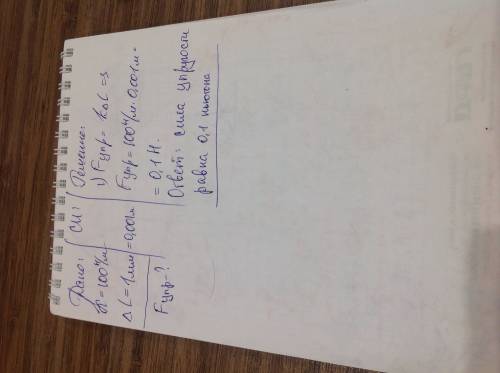 Дано:
k=100 Н/м
Δl=1мм
Fупр-?
СИ:
=0,001м
Решение:
1) Fупр= kΔl =>
Fупр=100Н/м·0,001м=
=0,1Н.
Ответ: сила упругости
равна 0,1 ньютона